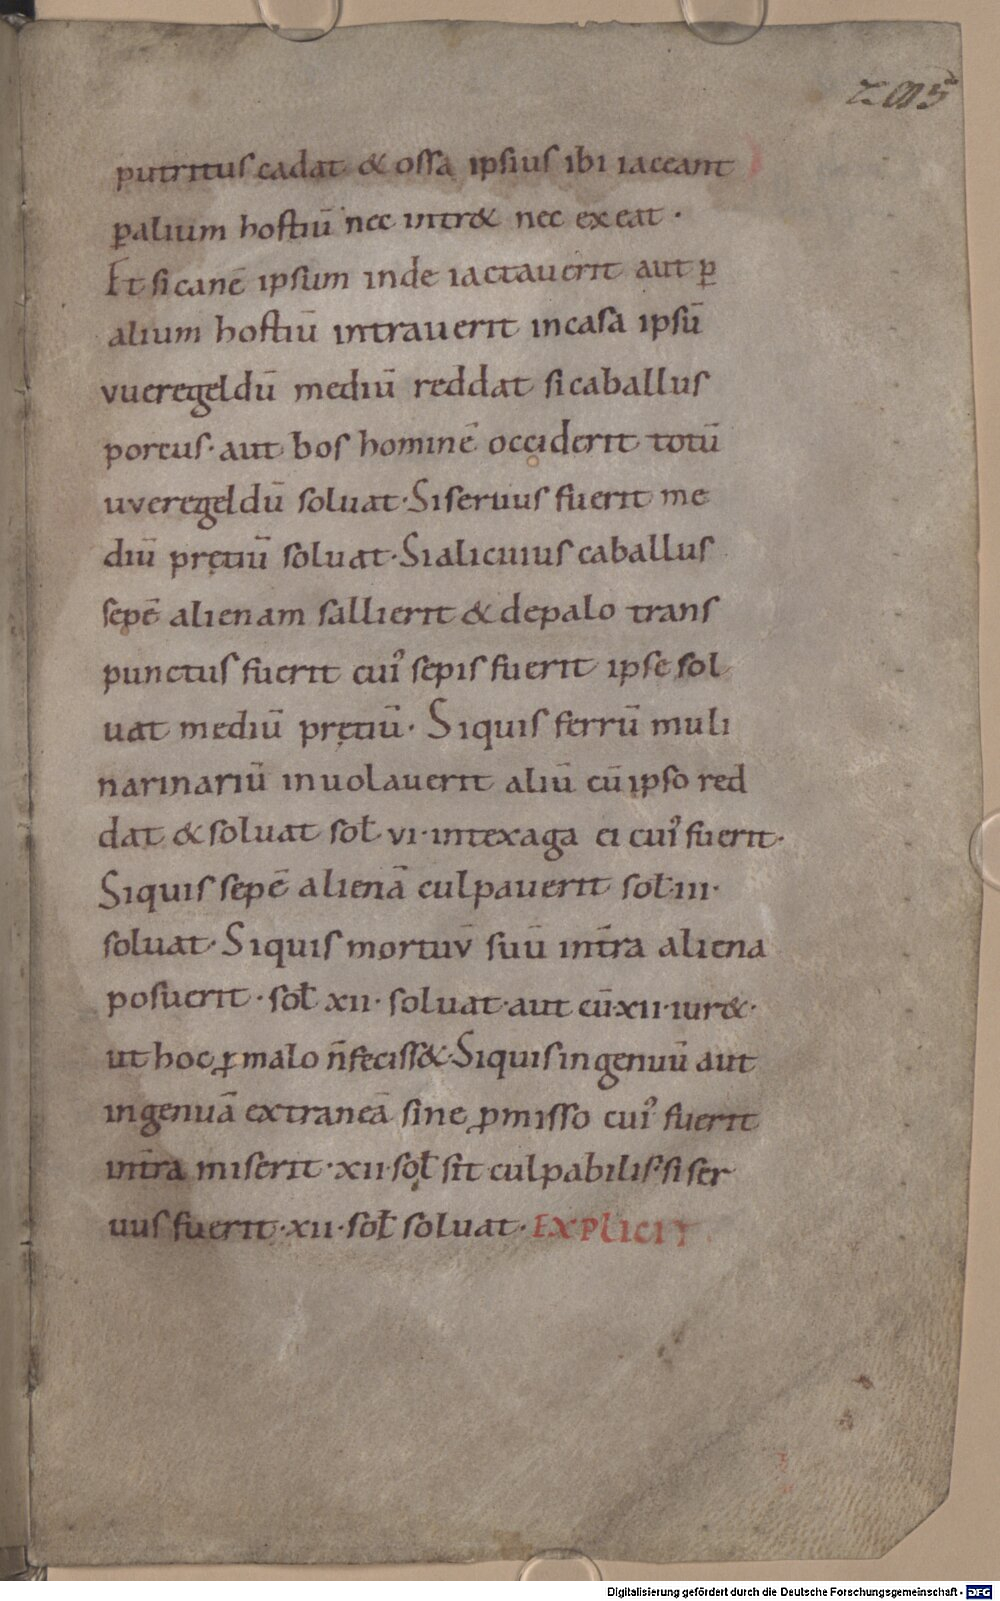 205
putritus cadat & ossa ipsius ibi iaceant
ꝑalium hostiū nec intr& nec exeat ·
Et si canē ipsum inde iactauerit aut ꝑ
alium hostiū intrauerit incasa ipsū
vueregeldū mediū reddat si caballus
porcus · aut bos hominē occiderit totū
uveregeldū soluat · Si seruus fuerit me
diū prętiū soluat · Si alicuius caballus
sepē alienam sallierit & depalo trans
punctus fuerit cuiꝰ sepis fuerit ipse sol
uat mediū prętiū · Siquis ferrū muli
narinariū inuolauerit aliū cū ipso red
dat & soluat sot vi · intexaga ei cuiꝰ fuerit ·
Siquis sepē alienā culpauerit sot · iii ·
soluat · Siquis mortuv̄ suū int̄ra aliena
posuerit · sot xii · soluat · aut cū · xii · iur& ·
ut hoc ꝓ malo n̄ feciss& · Siquis ingenuū aut
ingenuā extraneā sine ꝑmisso cuiꝰ fuerit
int̄ra miserit · xii · sot sit culpabilis · si ser
uus fuerit · xii · sot soluat · EXPLICIT
Digitalisierung gefördert durch die Deutsche Forschungsgemeinschaft - DFG